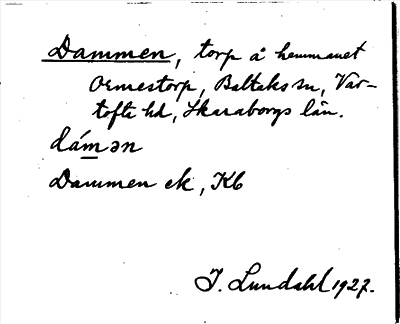 Dammen, torp å hemmanet
Ormestorp, Baltaks sn, Var-
tofta hd, Skaraborgs län.
dámən
Dammen ek, Kb
I. Lundahl 1927.